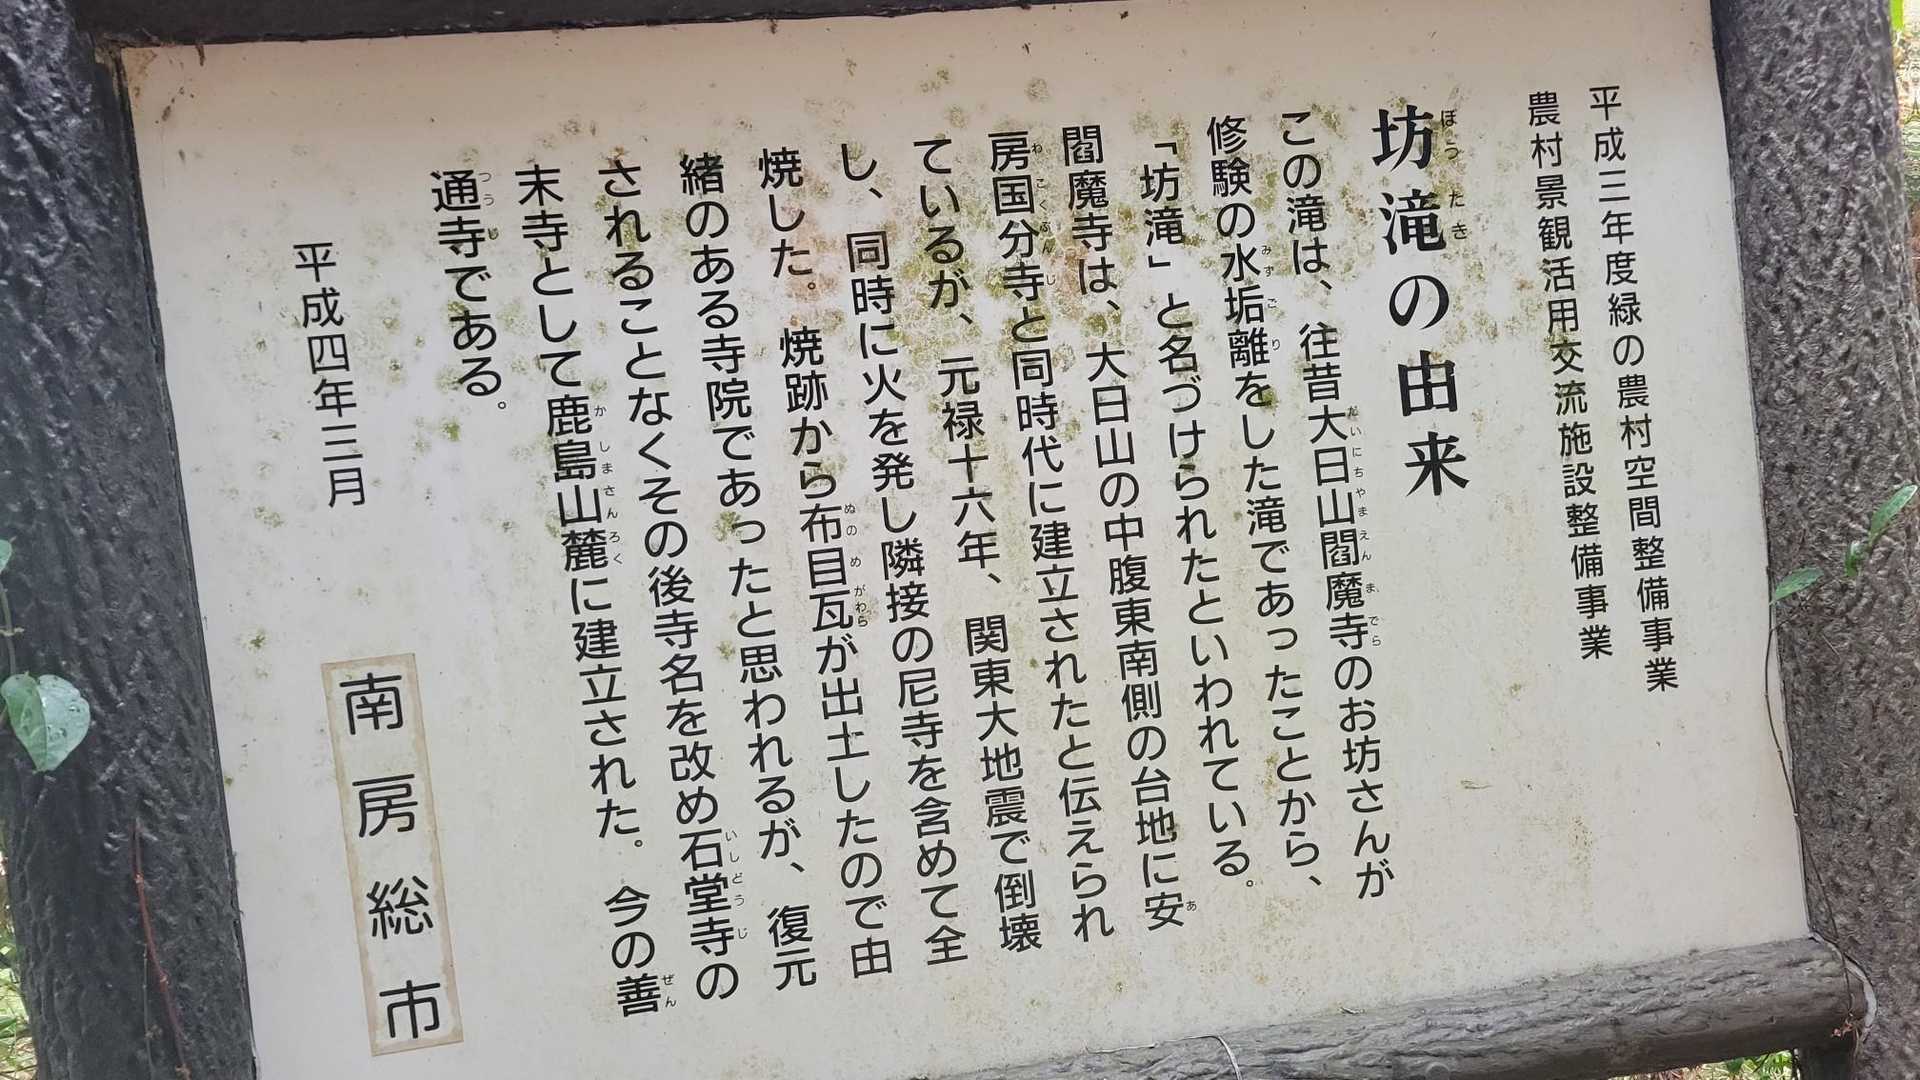 平成三年度緑の農村空間整備事業
農村景観活用交流施設整備事業
坊滝の由来
この滝は、往昔大日山閻魔寺のお坊さんが
修験の水垢離をした滝であったことから、
「坊滝」と名づけられたといわれている。
閻魔寺は、大日山の中腹東南側の台地に安
房国分寺と同時代に建立されたと伝えられ
ているが、元禄十六年、関東大地震で倒壊
し、同時に火を発し隣接の尼寺を含めて全
焼した。焼跡から布目瓦が出土したので由
緒のある寺院であったと思われるが、復元
されることなくその後寺名を改め石堂寺の
末寺として鹿島山麓に建立された。今の善
通寺である。
平成四年三月
南房総市